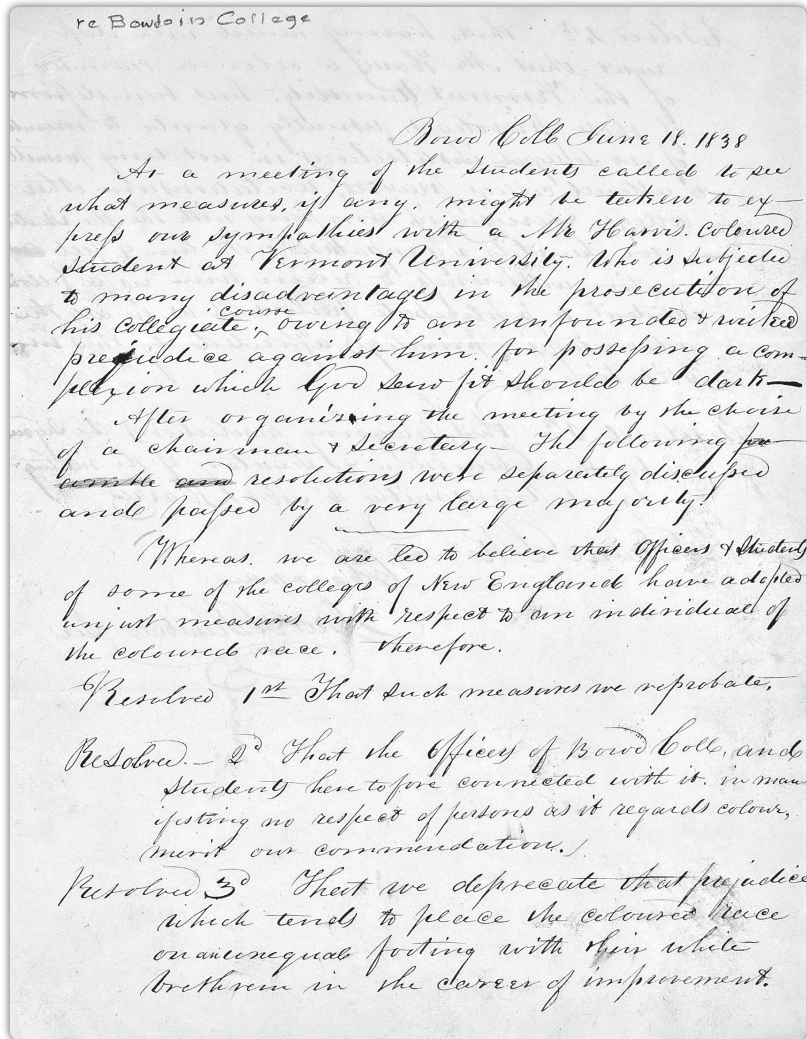 re Bowdoin College
Bowd Coll June 18. 1838
At a meeting of the Students called to see
what measures, if any. might be taken to ex-
press our sympathies with a Mr Harris. coloured
student at Vermont University. Who is subjected
to many disadvantages in the prosecution of
his collegiate course, owing to an unfounded & wicked
prejudice against him. for possessing a com-
plexion which God saw fit should be dark—
After organizing the meeting by the choise
of a chairman & Secretary— The following pre
amble and resolutions were separately discussed
and passed by a very large majority.
Whereas. we are led to believe that Officers & Students
of some of the colleges of New England have adopted
unjust measures with respect to an individual of
the coloured race. therefore.
Resolved 1st That such measures we reprobate.
Resolved.— 2d That the Officers of Bowd Coll, and
Students heretofore connected with it. in man
ifesting no respect of persons as it regards colour,
merit our commendation.
Resolved 3d That we deprecate that prejudice
which tends to place the coloured race
on an unequal footing with their white
brethren in the career of improvement.